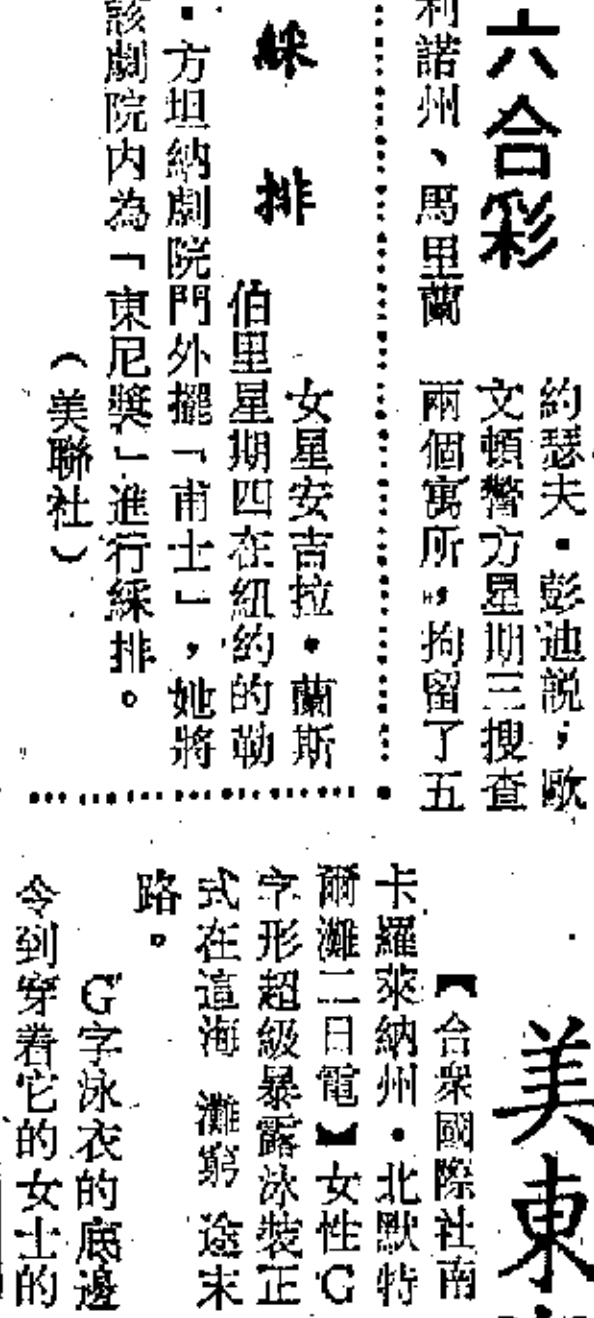 六合彩
約瑟夫·彭迪説，歐
文頓警方星期三搜查
兩個寓所，拘留了五
利諾州、馬里蘭
綵排
女星安吉拉·蘭斯
伯里星期四在紐約的勒
·方坦納劇院門外擺「甫士」，她將
該劇院内為「東尼獎」進行綵排。
（美聯社）
美東·
【合衆國際社南
卡羅萊納州·北默特
爾灘二日電】女性G
字形超級暴露泳裝正
式在這海灘窮途末
路。
G字泳衣的底邊
令到穿着它的女士的